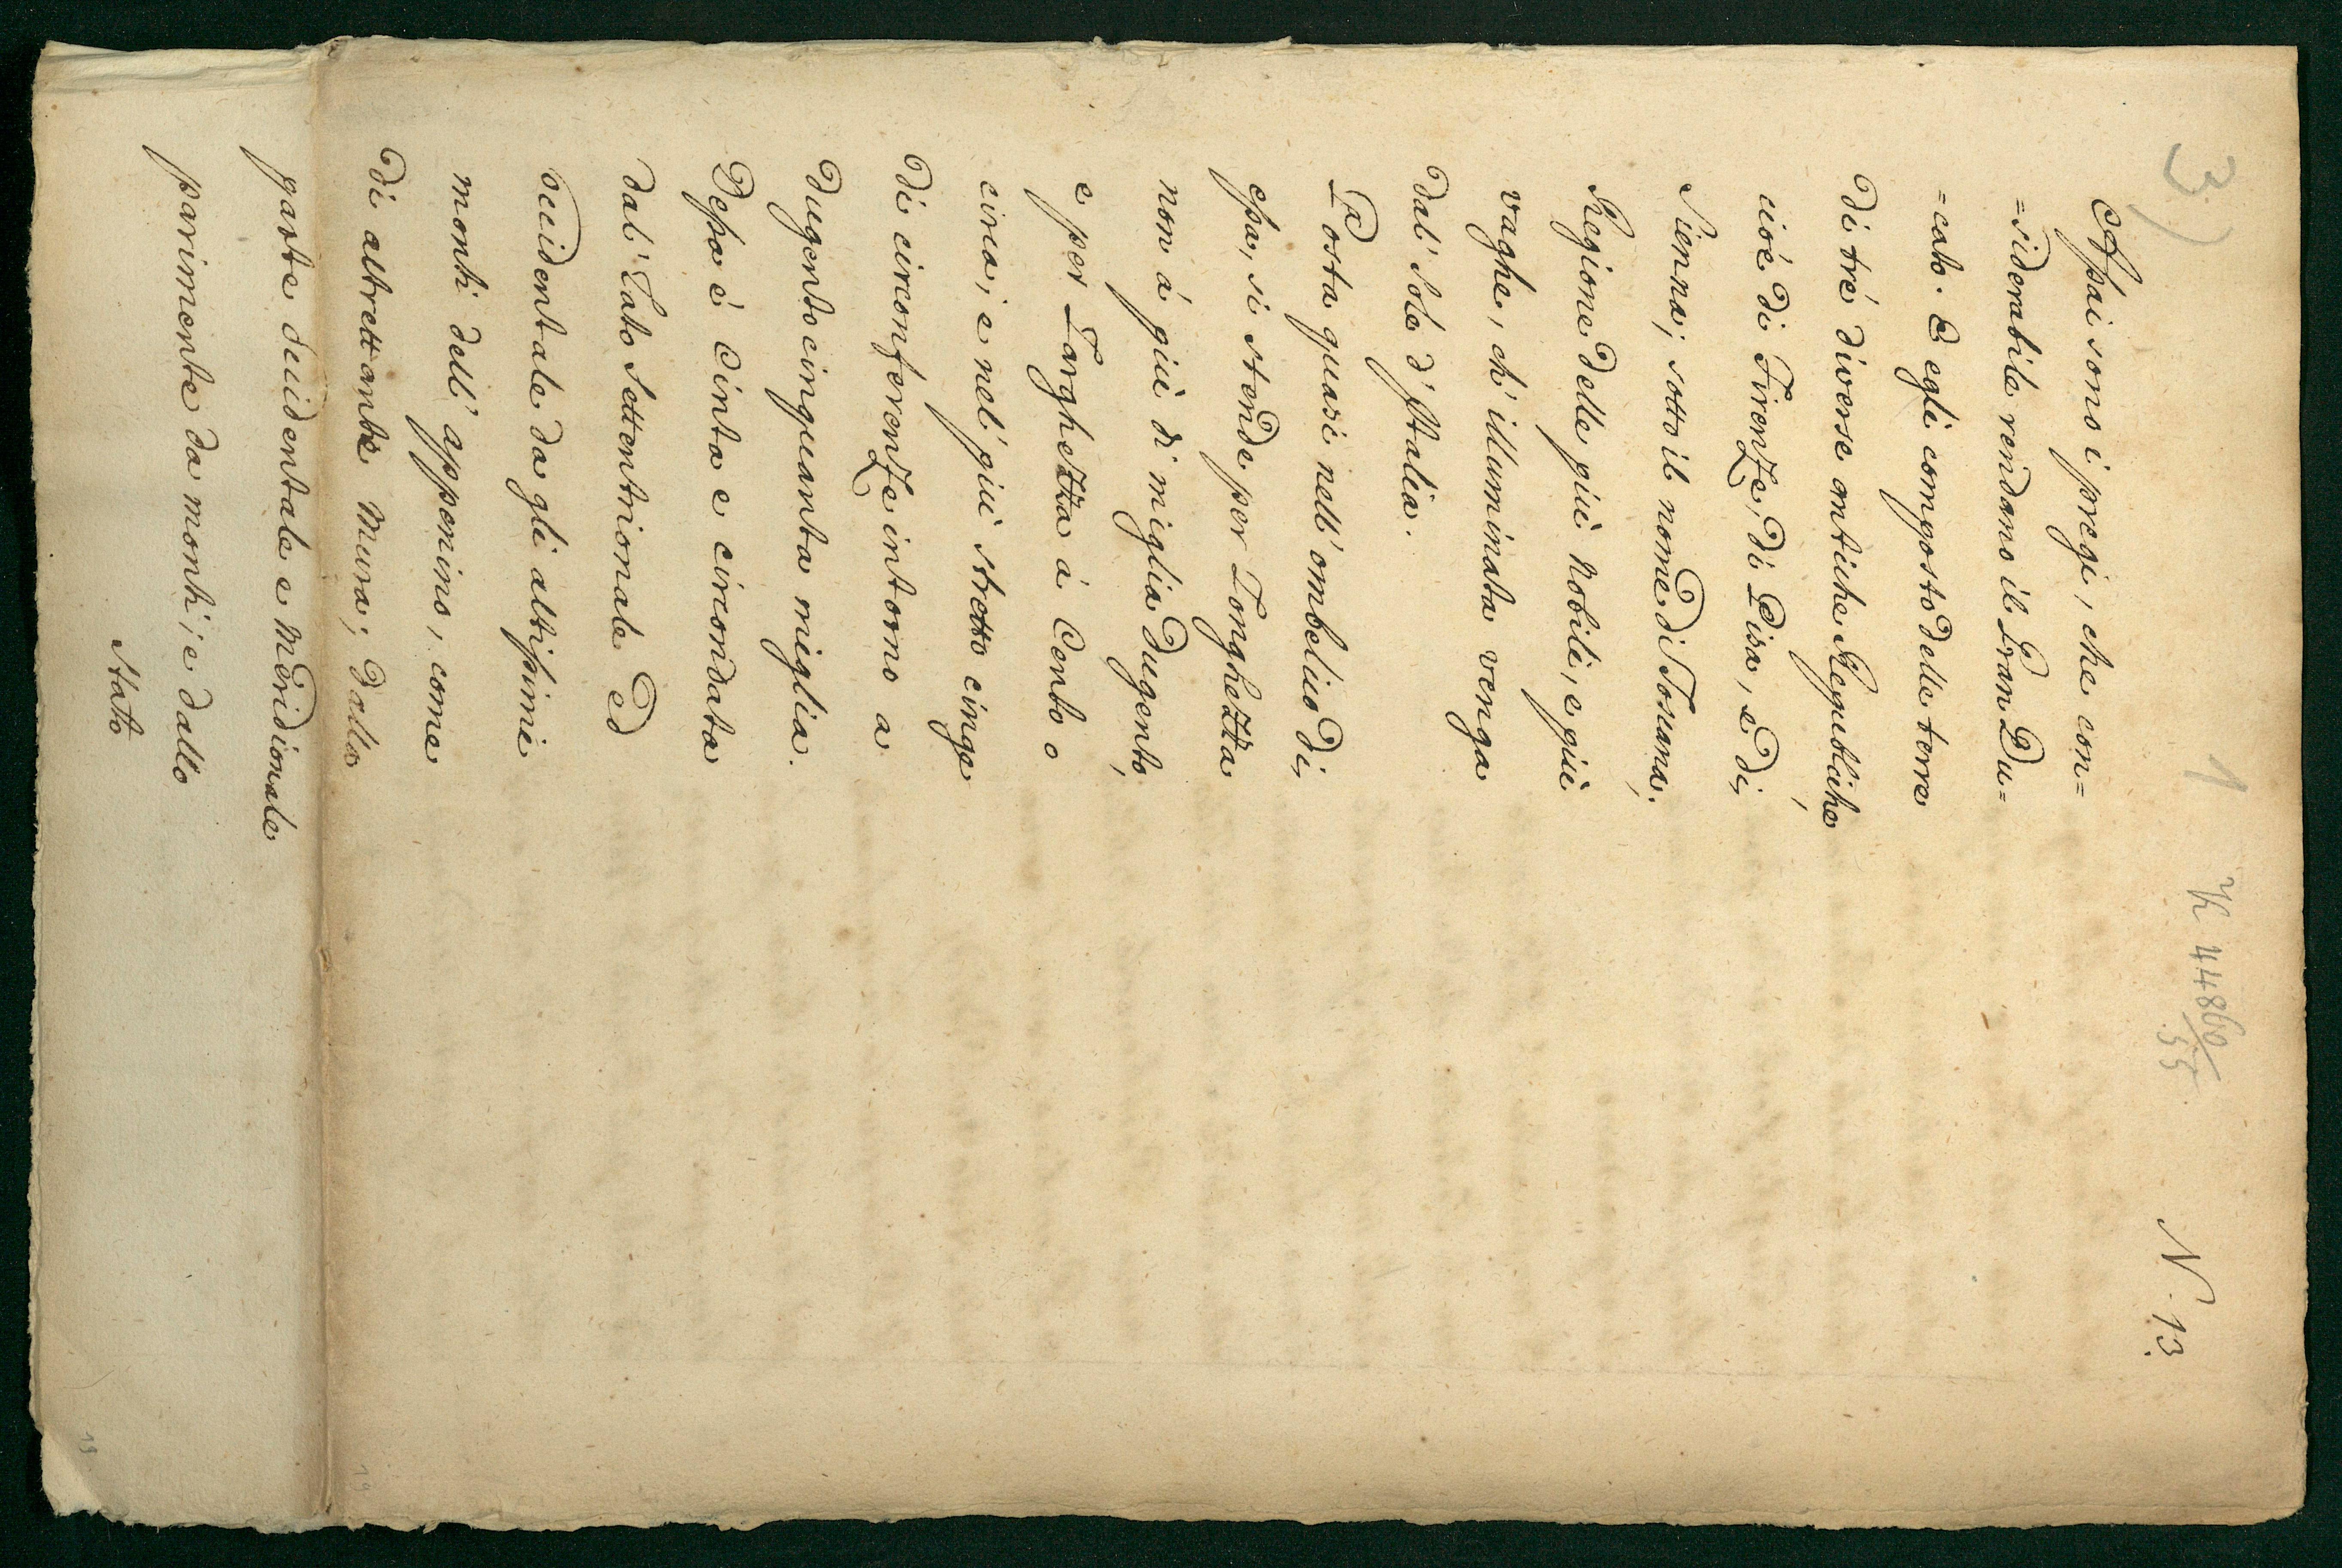 3) 1 K 44869/55 N. 13.
Assai sono i pregi, che con=
=siderabile rendano il Gran Du=
=cato. È egli composto delle terre
di tré diverse antiche Republiche,
cioé di Firenze, di Pisa, e di
Sienna; sotto il nome di Toscana;
Regione delle più nobili, e più
vaghe, ch' illuminata venga
dal' sole d' Italia.
Posta quasi nell' ombelico di
essa, si stende per Longhezza
non á più di miglia dugento,
e per Larghezza á Cento o
circa; e nel' più stretto cinge
di circonferenze intorno a
dugento cinquanta miglia.
Dessa è Cinta e circondata
dal' Lato settentrionale ed
occidentale da gli altissimi
monti dell' appenino, come
di altrettante Mura; dalla
parte occidentale e Meridionale
parimente da monti; e dallo
stato
19
19